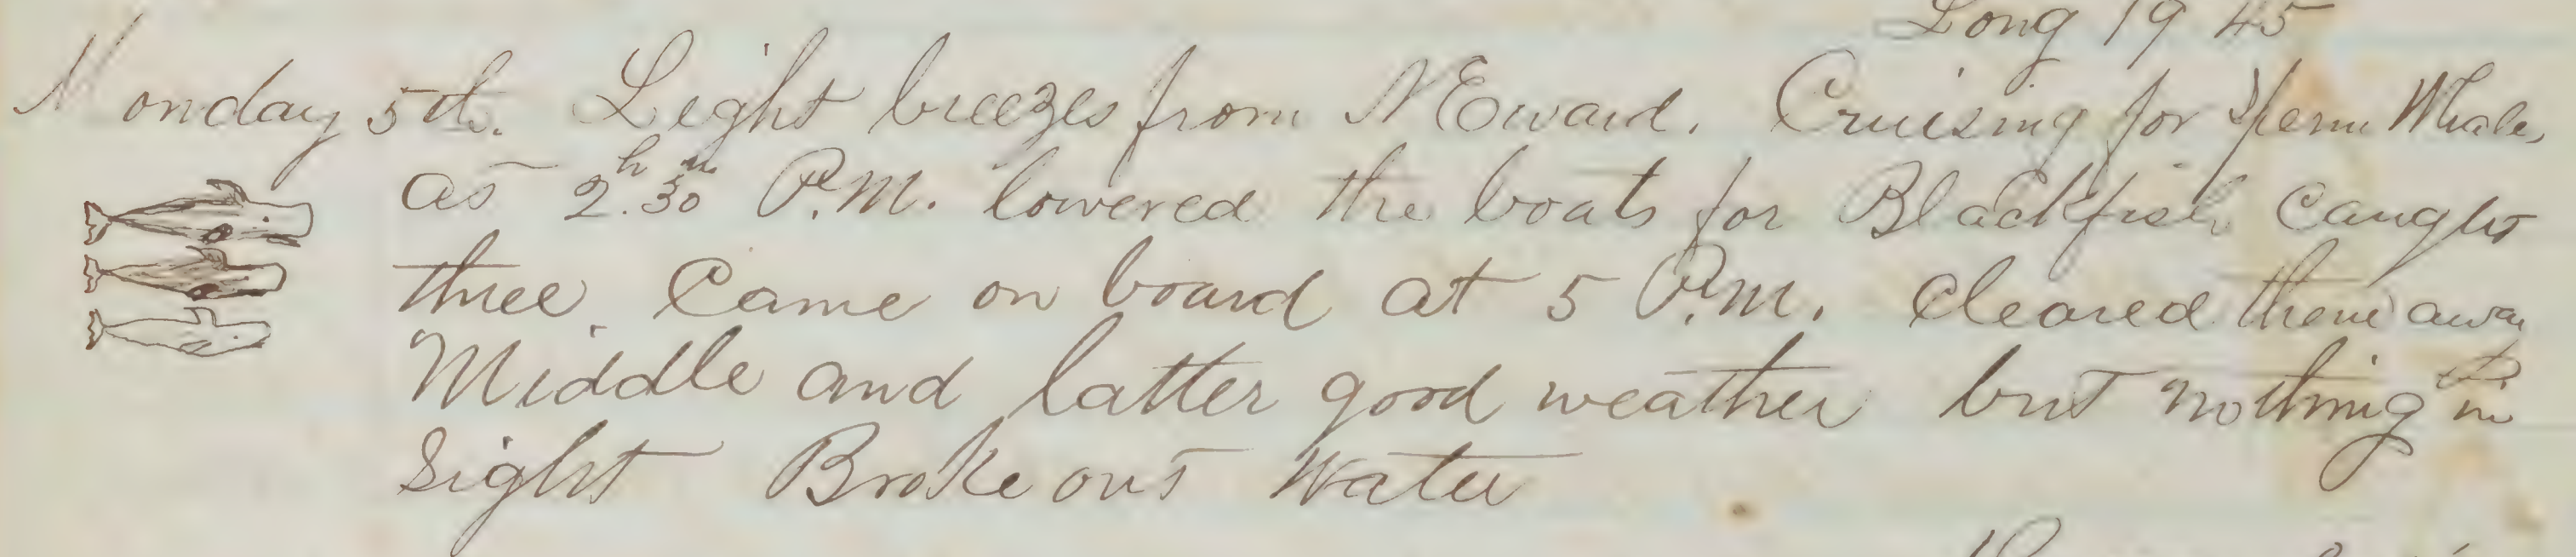 Long 19 45
Monday 5th. Light breezes from N Eward. Cruising for Sperm Whale,
as 2.30 h m P.M. lowered the boats for Blackfish Caught
three. Came on board at 5 P.M. Cleared them away
Middle and latter good weather but nothing in
Sight Broke out Water